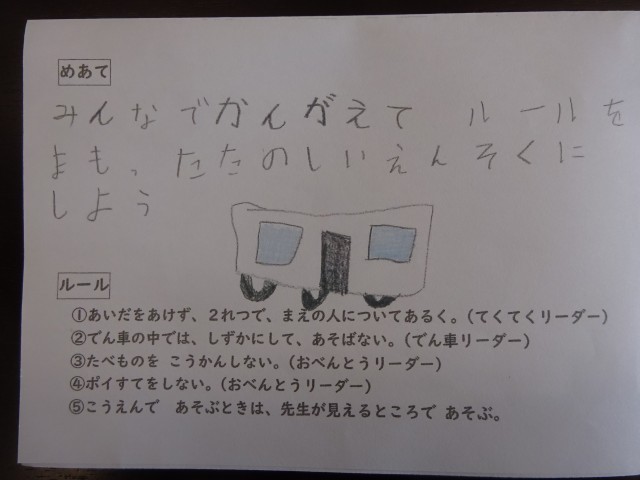 めあて
みんなでかんがえて ルールを
まもったたのしいえんそくに
しよう
ルール
①あいだをあけず、2れつで、まえの人についてあるく。(てくてくリーダー)
②でん車の中では、しずかにして、あそばない。(でん車リーダー)
③たべものを こうかんしない。(おべんとうリーダー)
④ポイすてをしない。(おべんとうリーダー)
⑤こうえんで あそぶときは、先生が見えるところで あそぶ。